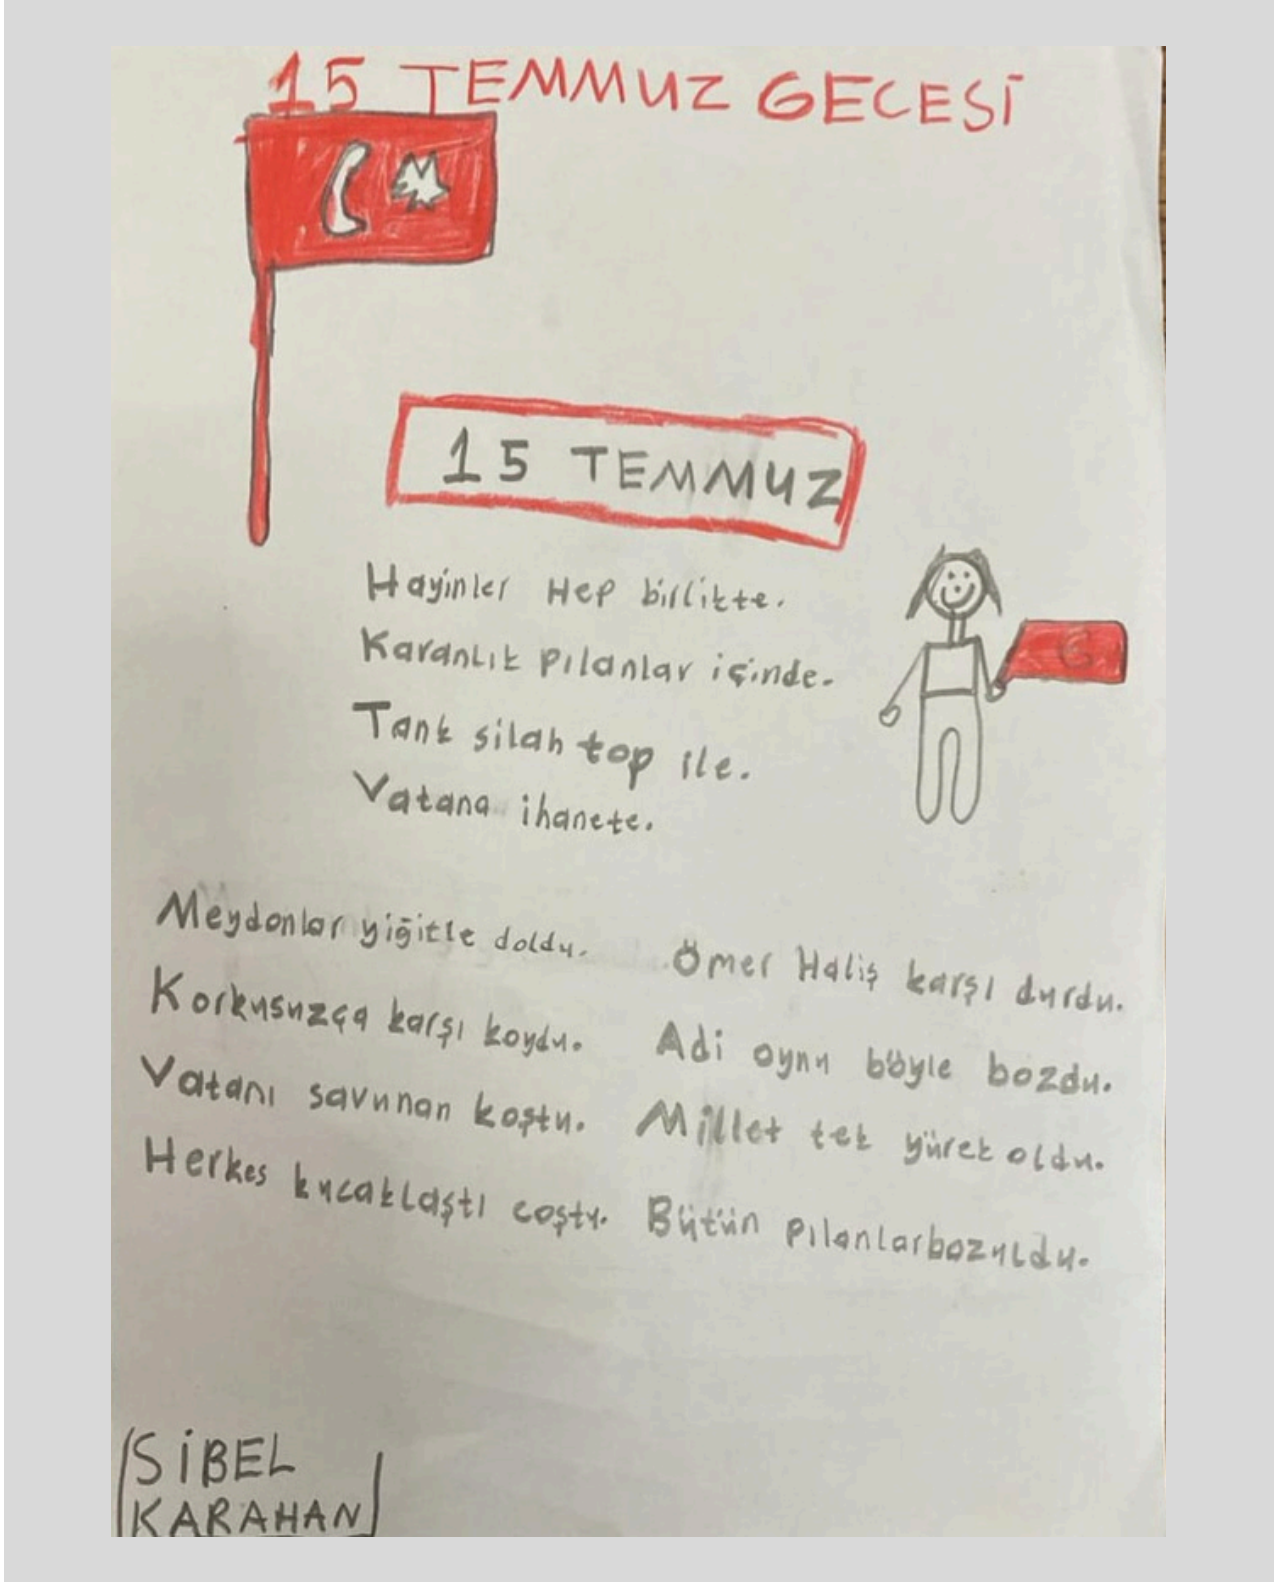 15 TEMMUZ GECESİ
15 TEMMUZ
Hayinler Hep birlikte.
Karanlık pılanlar içinde.
Tank silah top ile.
Vatana ihanete.
Meydanlar yiğitle doldu.
Korkusuzca karşı koydu.
Vatanı savunan koştu.
Herkes kucaklaştı coştu.
Ömer Haliş karşı durdu.
Adi oynu böyle bozdu.
Millet tek yürek oldu.
Bütün pılanlar bozuldu.
SİBEL
KARAHAN